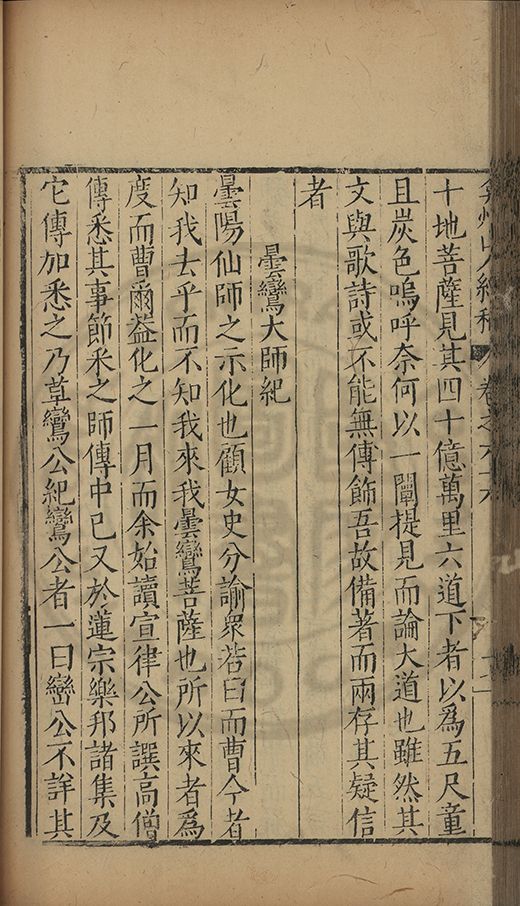 十地菩薩見其四十億萬里六道下者以爲五尺童
且炭色嗚呼奈何以一闡提見而論大道也雖然其
文與歌詩或不能無傳飾吾故備著而兩存其疑信
者
曇鸞大師紀
曇陽仙師之示化也顧女史分諭衆若曰而曹今者
知我去乎而不知我來我曇鸞菩薩也所以來者爲
度而曹爾葢化之一月而余始讀宣律公所譔高僧
傳悉其事節釆之師傳中已又於蓮宗樂邦諸集及
它傳加悉之乃草鸞公紀鸞公者一曰巒公不詳其